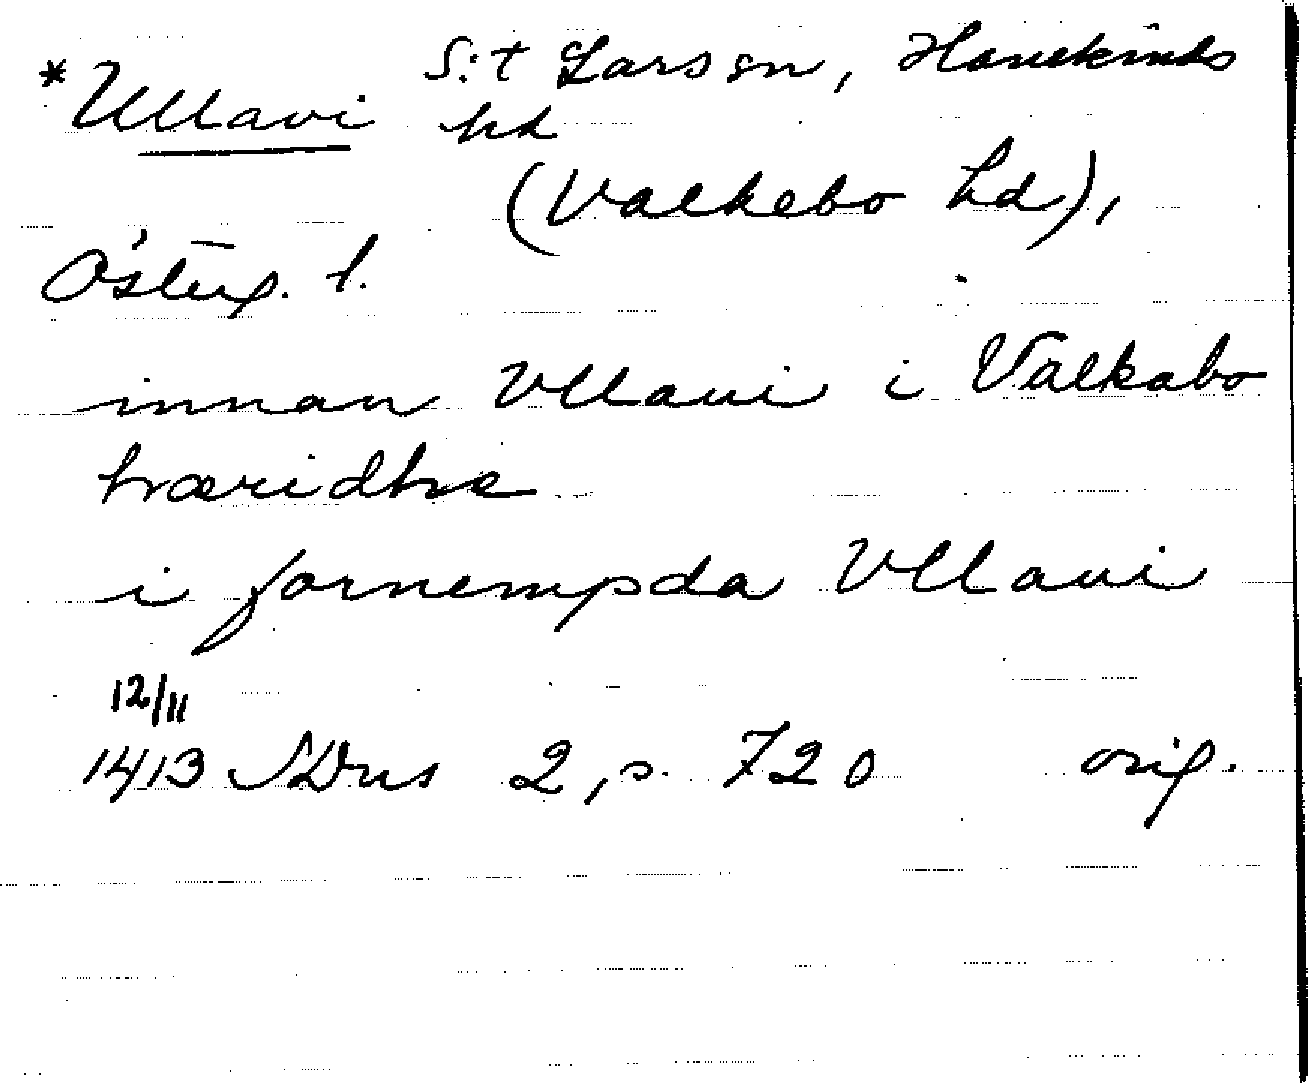 *Ullavi S:t Lars sn, Hanekinds
hd
(Valkebo hd),
Österg. l.
innan Vllaui i Valkabo
hæridhe
i fornempda Vllaui
12/11
1413 SDns 2, s. 720 orig.